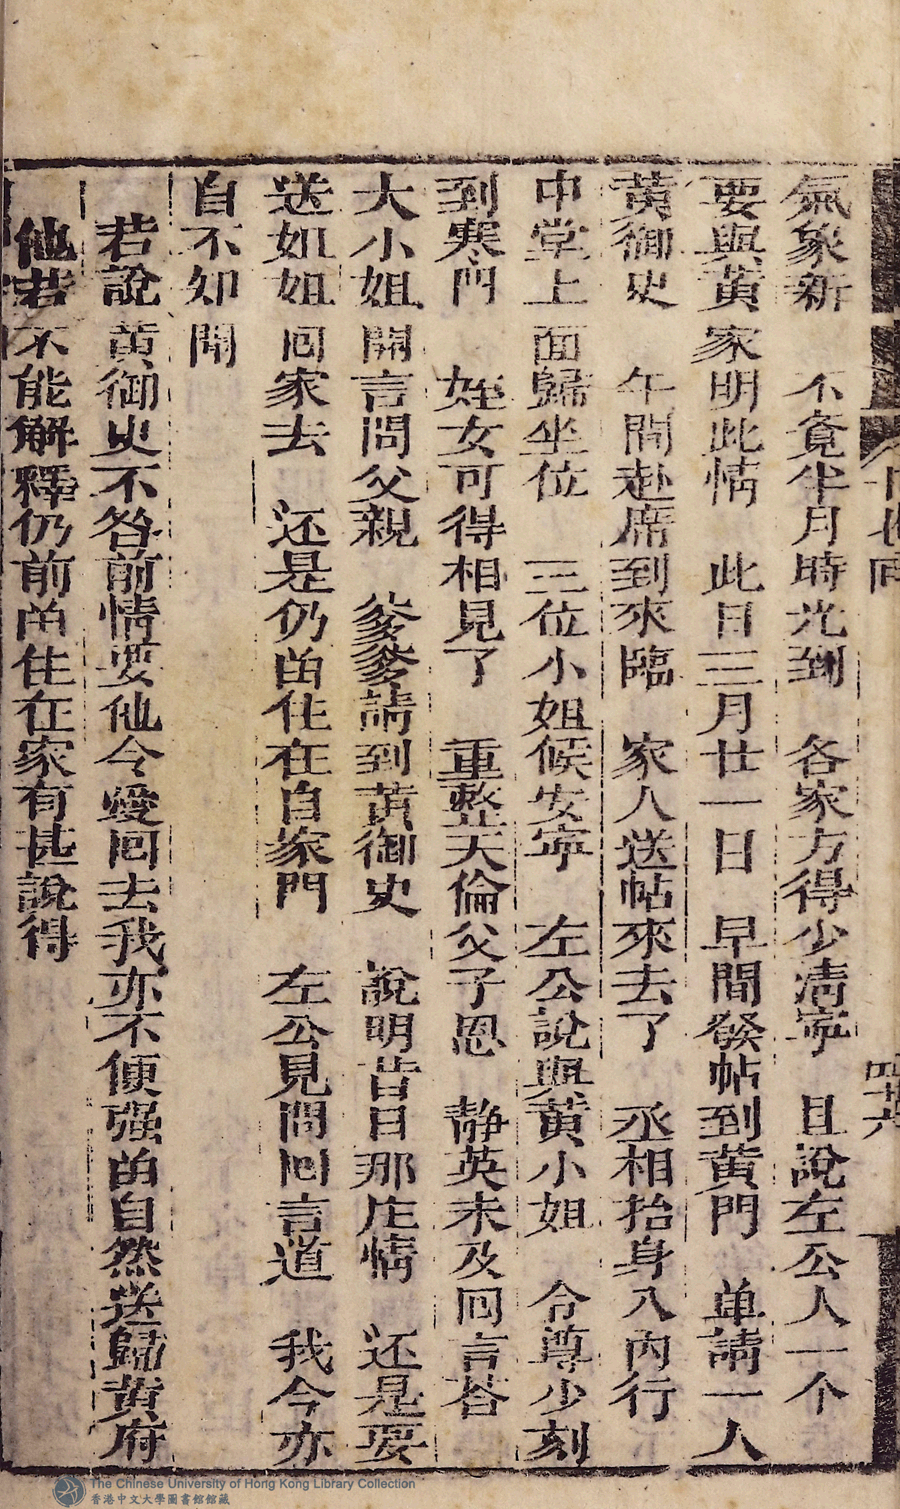 氣象新　不覔半月時光到　各家方得少淸寧　且說左公人一个
要與黃家明此情　此日三月廿一日　早間發帖到黃門　单請一人
黃御史　午間赴席到來臨　家人送帖來去了　丞相抬身入內行
中堂上面歸坐位　三位小姐候安寧　左公說與黃小姐　令尊少刻
到寒门　姪女可得相見了　重整天倫父子恩　静英未及囘言荅
大小姐開言問父親　爹爹請到黃御史　說明昔日那庄情　还是要
送姐姐囘家去　还是仍畄住在自家門　左公見問囘言道　我今亦
自不知聞
若說黃御史不咎前情要他令愛囘去我亦不便强畄自然送歸黃府
他若不能解釋仍前畄住在家有甚說得
The Chinese University of Hong Kong Library Collection
香港中文大學圖書館館藏